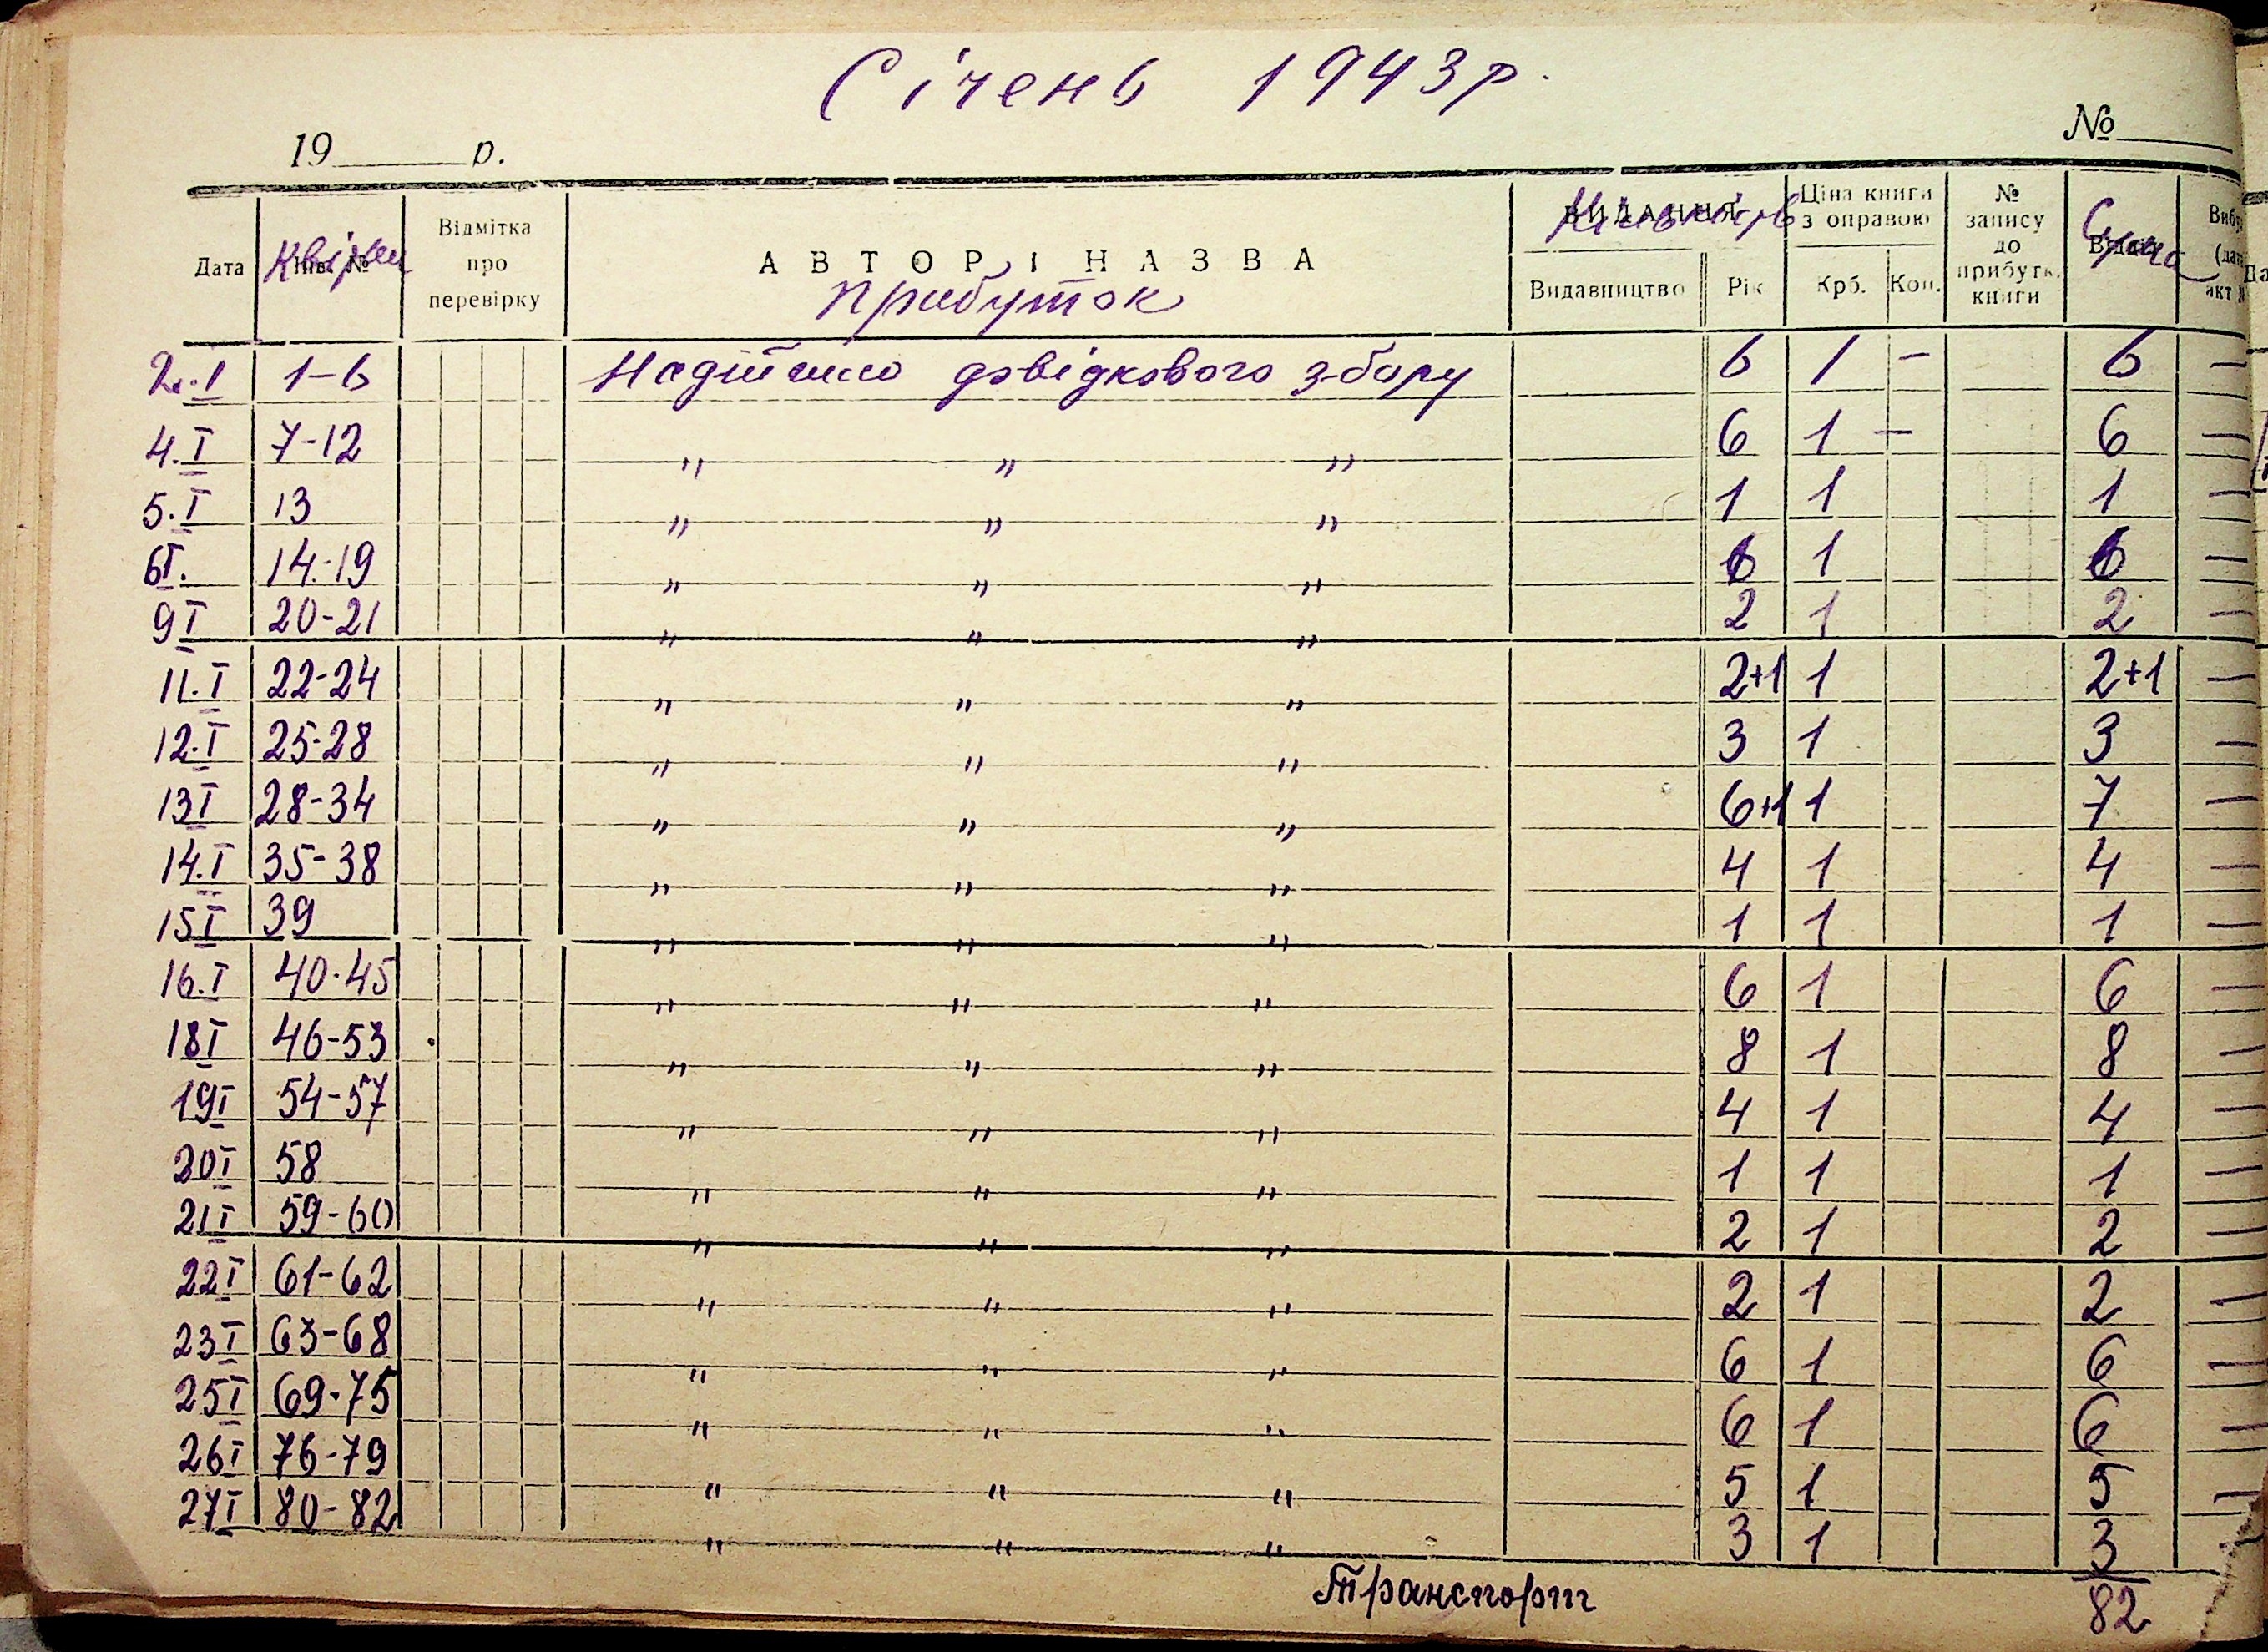 Січень 1943 р.
19 р. №
Дата Квітки Інв. № Відмітка про перевірку АВТОР І НАЗВА ВИДАННЯ Ціна книги з оправою № запису до прибутк. книги Сума
Прибуток Видавництво Рік Крб. Коп.
2.I 1-6 Надійшло довідкового збору 6 1 - 6 —
4.I 7-12 " " " 6 1 — 6 —
5.I 13 " " " 1 1 1 —
6I. 14-19 " " " 6 1 6 —
9I 20-21 " " " 2 1 2 —
11.I 22-24 " " " 2+1 1 2+1 —
12.I 25-28 " " " 3 1 3 —
13I 28-34 " " " 6+1 1 7 —
14.I 35-38 " " " 4 1 4 —
15I 39 " " " 1 1 1 —
16.I 40-45 " " " 6 1 6 —
18I 46-53 " " " 8 1 8 —
19I 54-57 " " " 4 1 4 —
20I 58 " " " 1 1 1 —
21I 59-60 " " " 2 1 2 —
22I 61-62 " " " 2 1 2 —
23I 63-68 " " " 6 1 6 —
25I 69-75 " " " 6 1 6 —
26I 76-79 " " " 5 1 5 —
27I 80-82 " " " 3 1 3 —
Транспорт 82